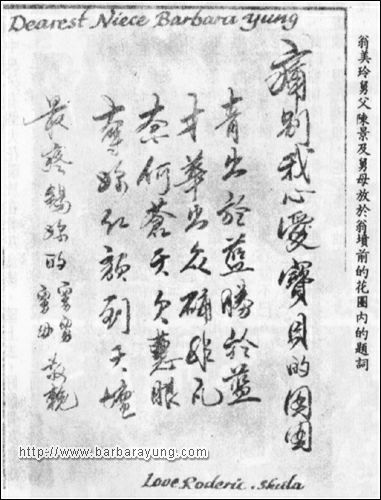 Dearest Niece Barbara Yung
翁美玲舅父陳景及舅母放於翁墳前的花圈內的題詞
痛别我心愛寶貝的囡囡
青出於藍勝於藍
才華出众確非凡
奈何蒼天欠慧眼
妳红颜到天
最疼錫妳的 敬輓
http://www.barbarayung.com
Love Roderic . Skula